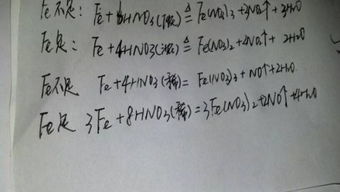 Fe不足: Fe+6HNO₃(浓)≜Fe(NO₃)₃+3NO₂↑+3H₂O
Fe足: Fe+4HNO₃(浓)≜Fe(NO₃)₂+2NO₂↑+2H₂O
Fe不足 Fe+4HNO₃(稀)=Fe(NO₃)₃+NO↑+2H₂O
Fe足 3Fe+8HNO₃(稀)=3Fe(NO₃)₂+2NO↑+4H₂O